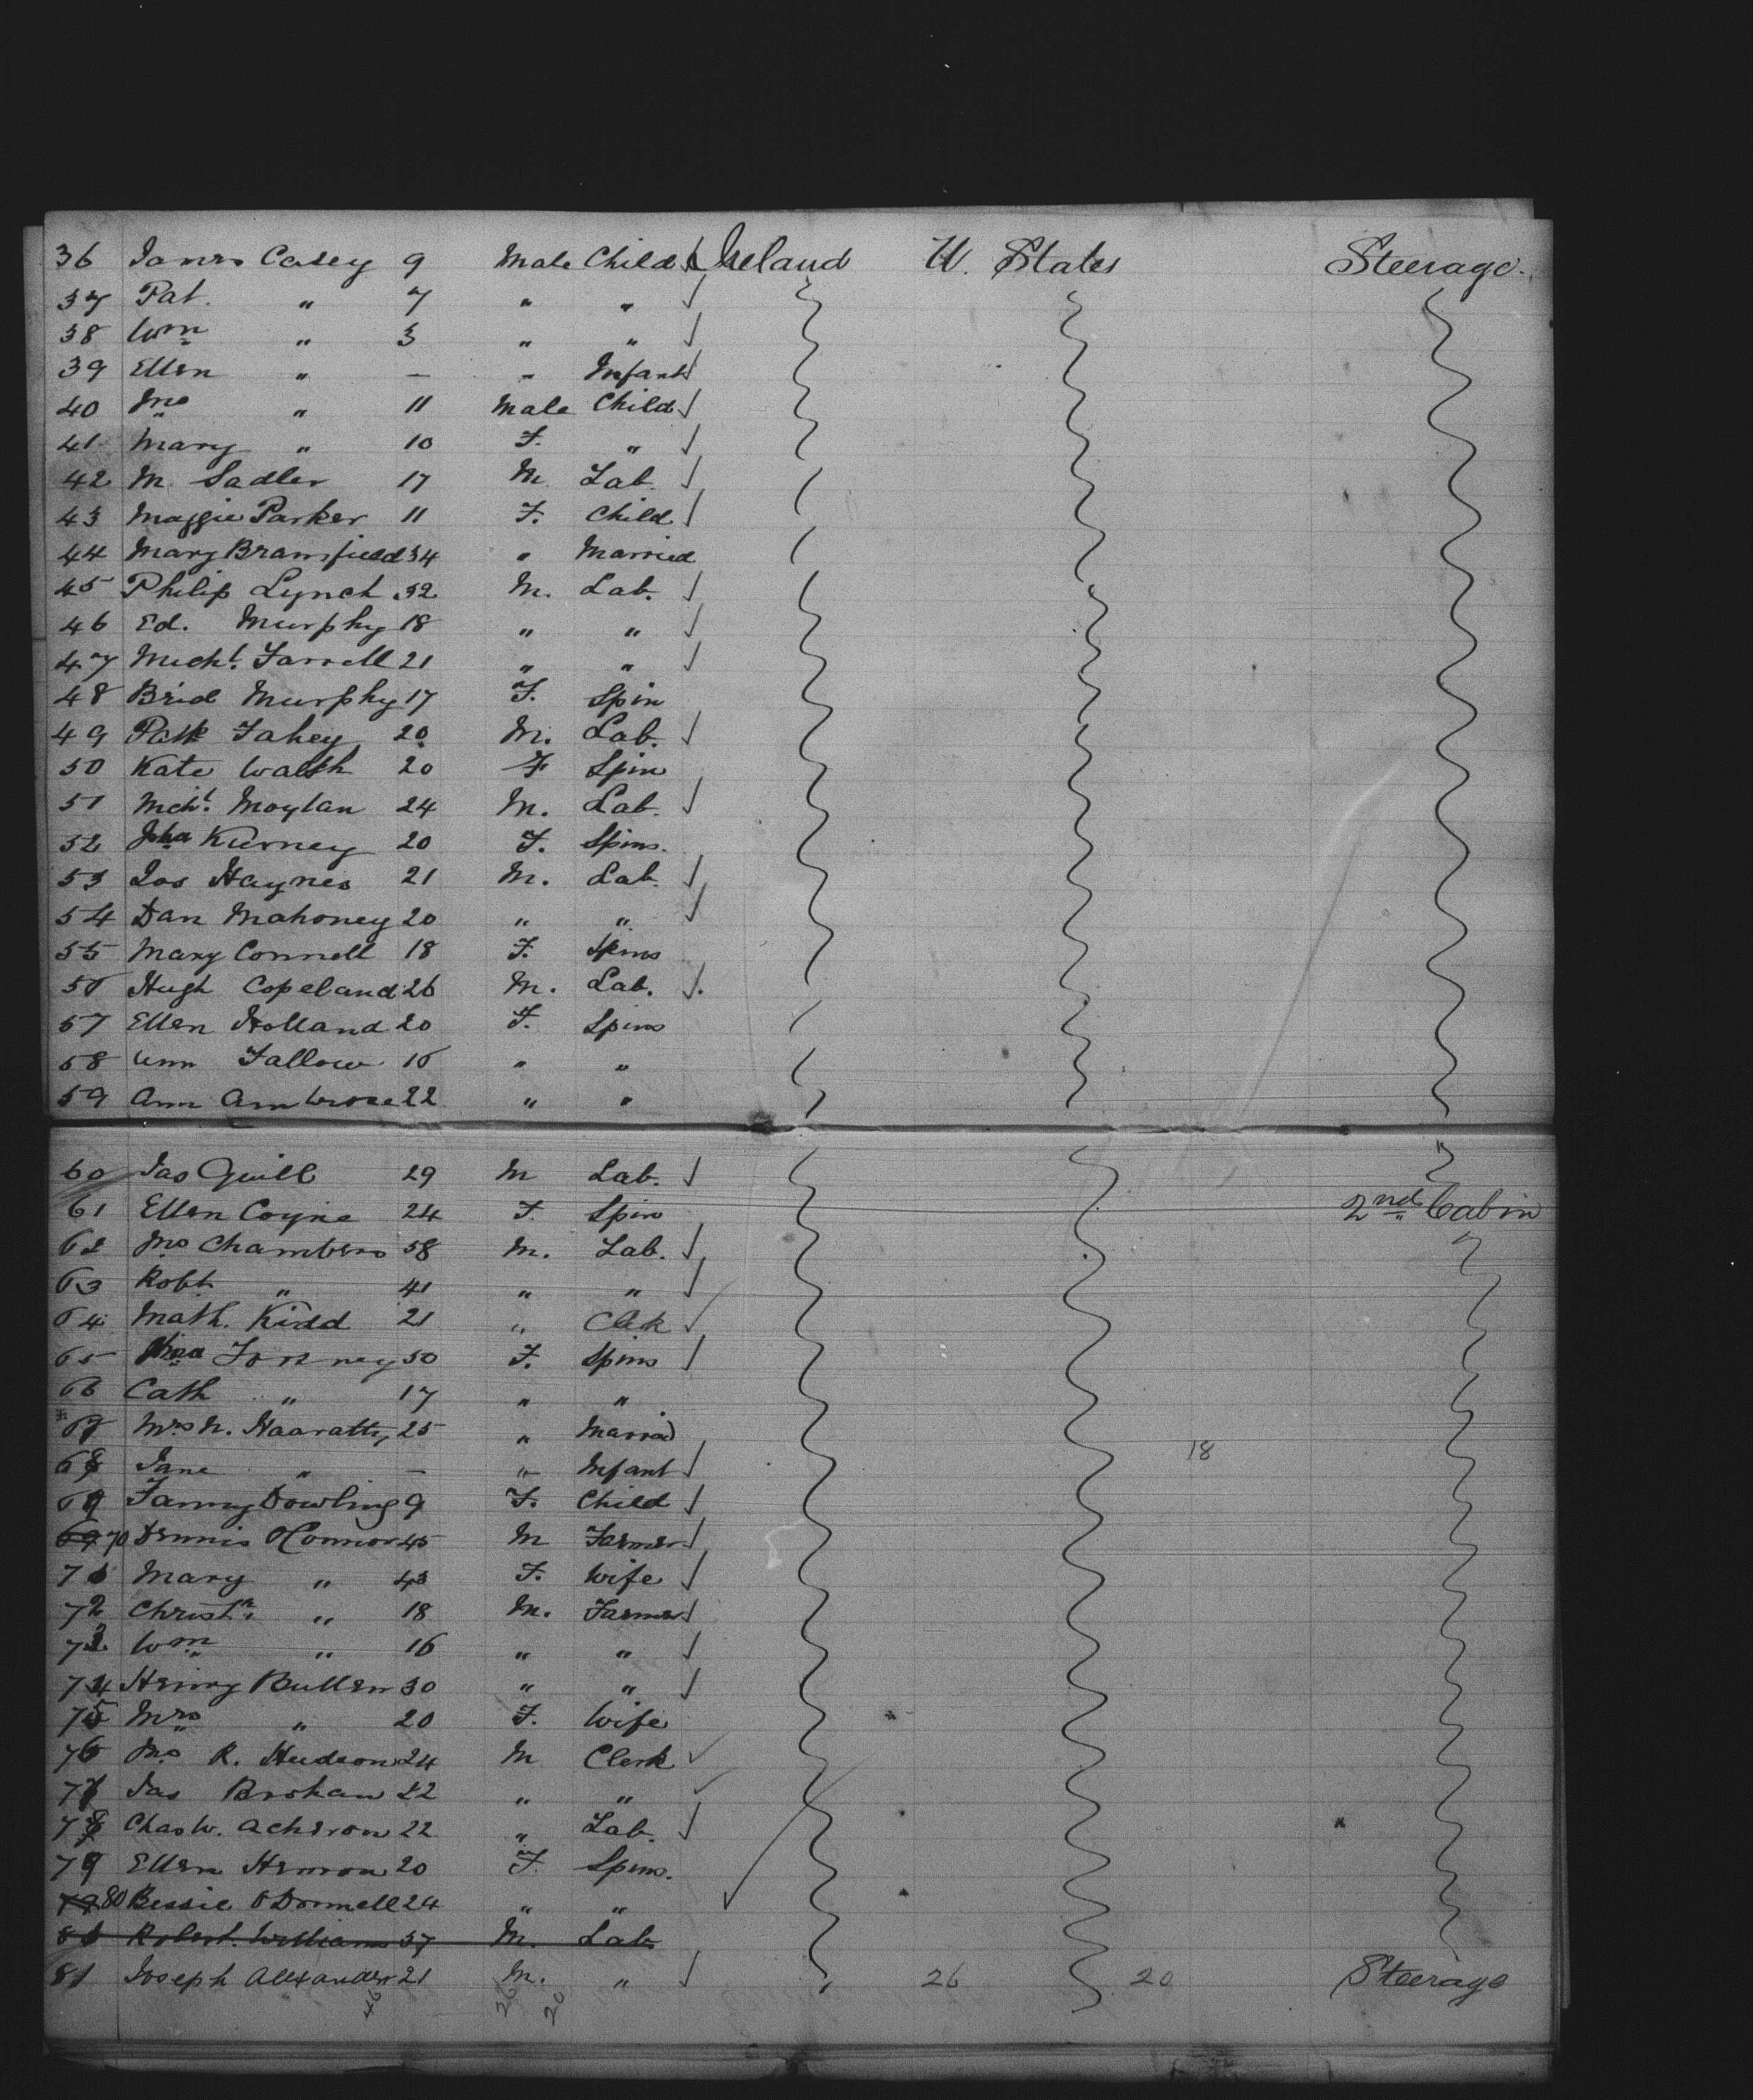 36 James Casey 9 Male Child Ireland U. States Steerage.
37 Pat. " 7 " "
38 Wm " 3 " "
39 Ellen " — " Infant
40 Jno " 11 Male Child
41 Mary " 10 F. "
42 M. Sadler 17 M. Lab.
43 Maggie Parker 11 F. Child
44 Mary Bransfield 34 " Married
45 Philip Lynch 32 M. Lab.
46 Ed. Murphy 18 " "
47 Michl. Farrell 21 " "
48 Brid Murphy 17 F. Spin
49 Patk Fahey 20 M. Lab.
50 Kate Walsh 20 F Spin
51 Mchl. Moylan 24 M. Lab.
52 Jha Kirney 20 F. Spins.
53 Jos Haynes 21 M. Lab.
54 Dan Mahoney 20 " "
55 Mary Connell 18 F. Spins
56 Hugh Copeland 26 M. Lab.
57 Ellen Holland 20 F. Spins
58 Ann Fallow 16 " "
59 Ann Ambrose 22 " "
60 Jas Quill 29 M Lab.
61 Ellen Coyne 24 F. Spin 2nd Cabin
62 Jno Chambers 58 M. Lab.
63 Robt " 41 " "
64 Math. Kidd 21 " Clerk
65 50 F. Spins
66 Cath " 17 " "
67 Mrs N. 25 " Married
68 Jane " — " Infant 18
69 Fanny Dowling 9 F. Child
70 Dennis OConnor 45 M Farmer
71 Mary " 43 F. Wife
72 Christr. " 18 M. Farmer
73 Wm " 16 " "
74 Henry Bullen 30 " "
75 Mrs " 20 F. Wife
76 Jno R. Hudson 24 M Clerk
77 Jas Brohan 22 " "
78 Chas W. Acheron 22 " Lab.
79 Ellen 20 F. Spins.
80 Bessie ODonnell 24 " "
Robert. Williams 37 M. Lab
81 Joseph Alexander 21 M. " 26 20 Steerage
46 26 20